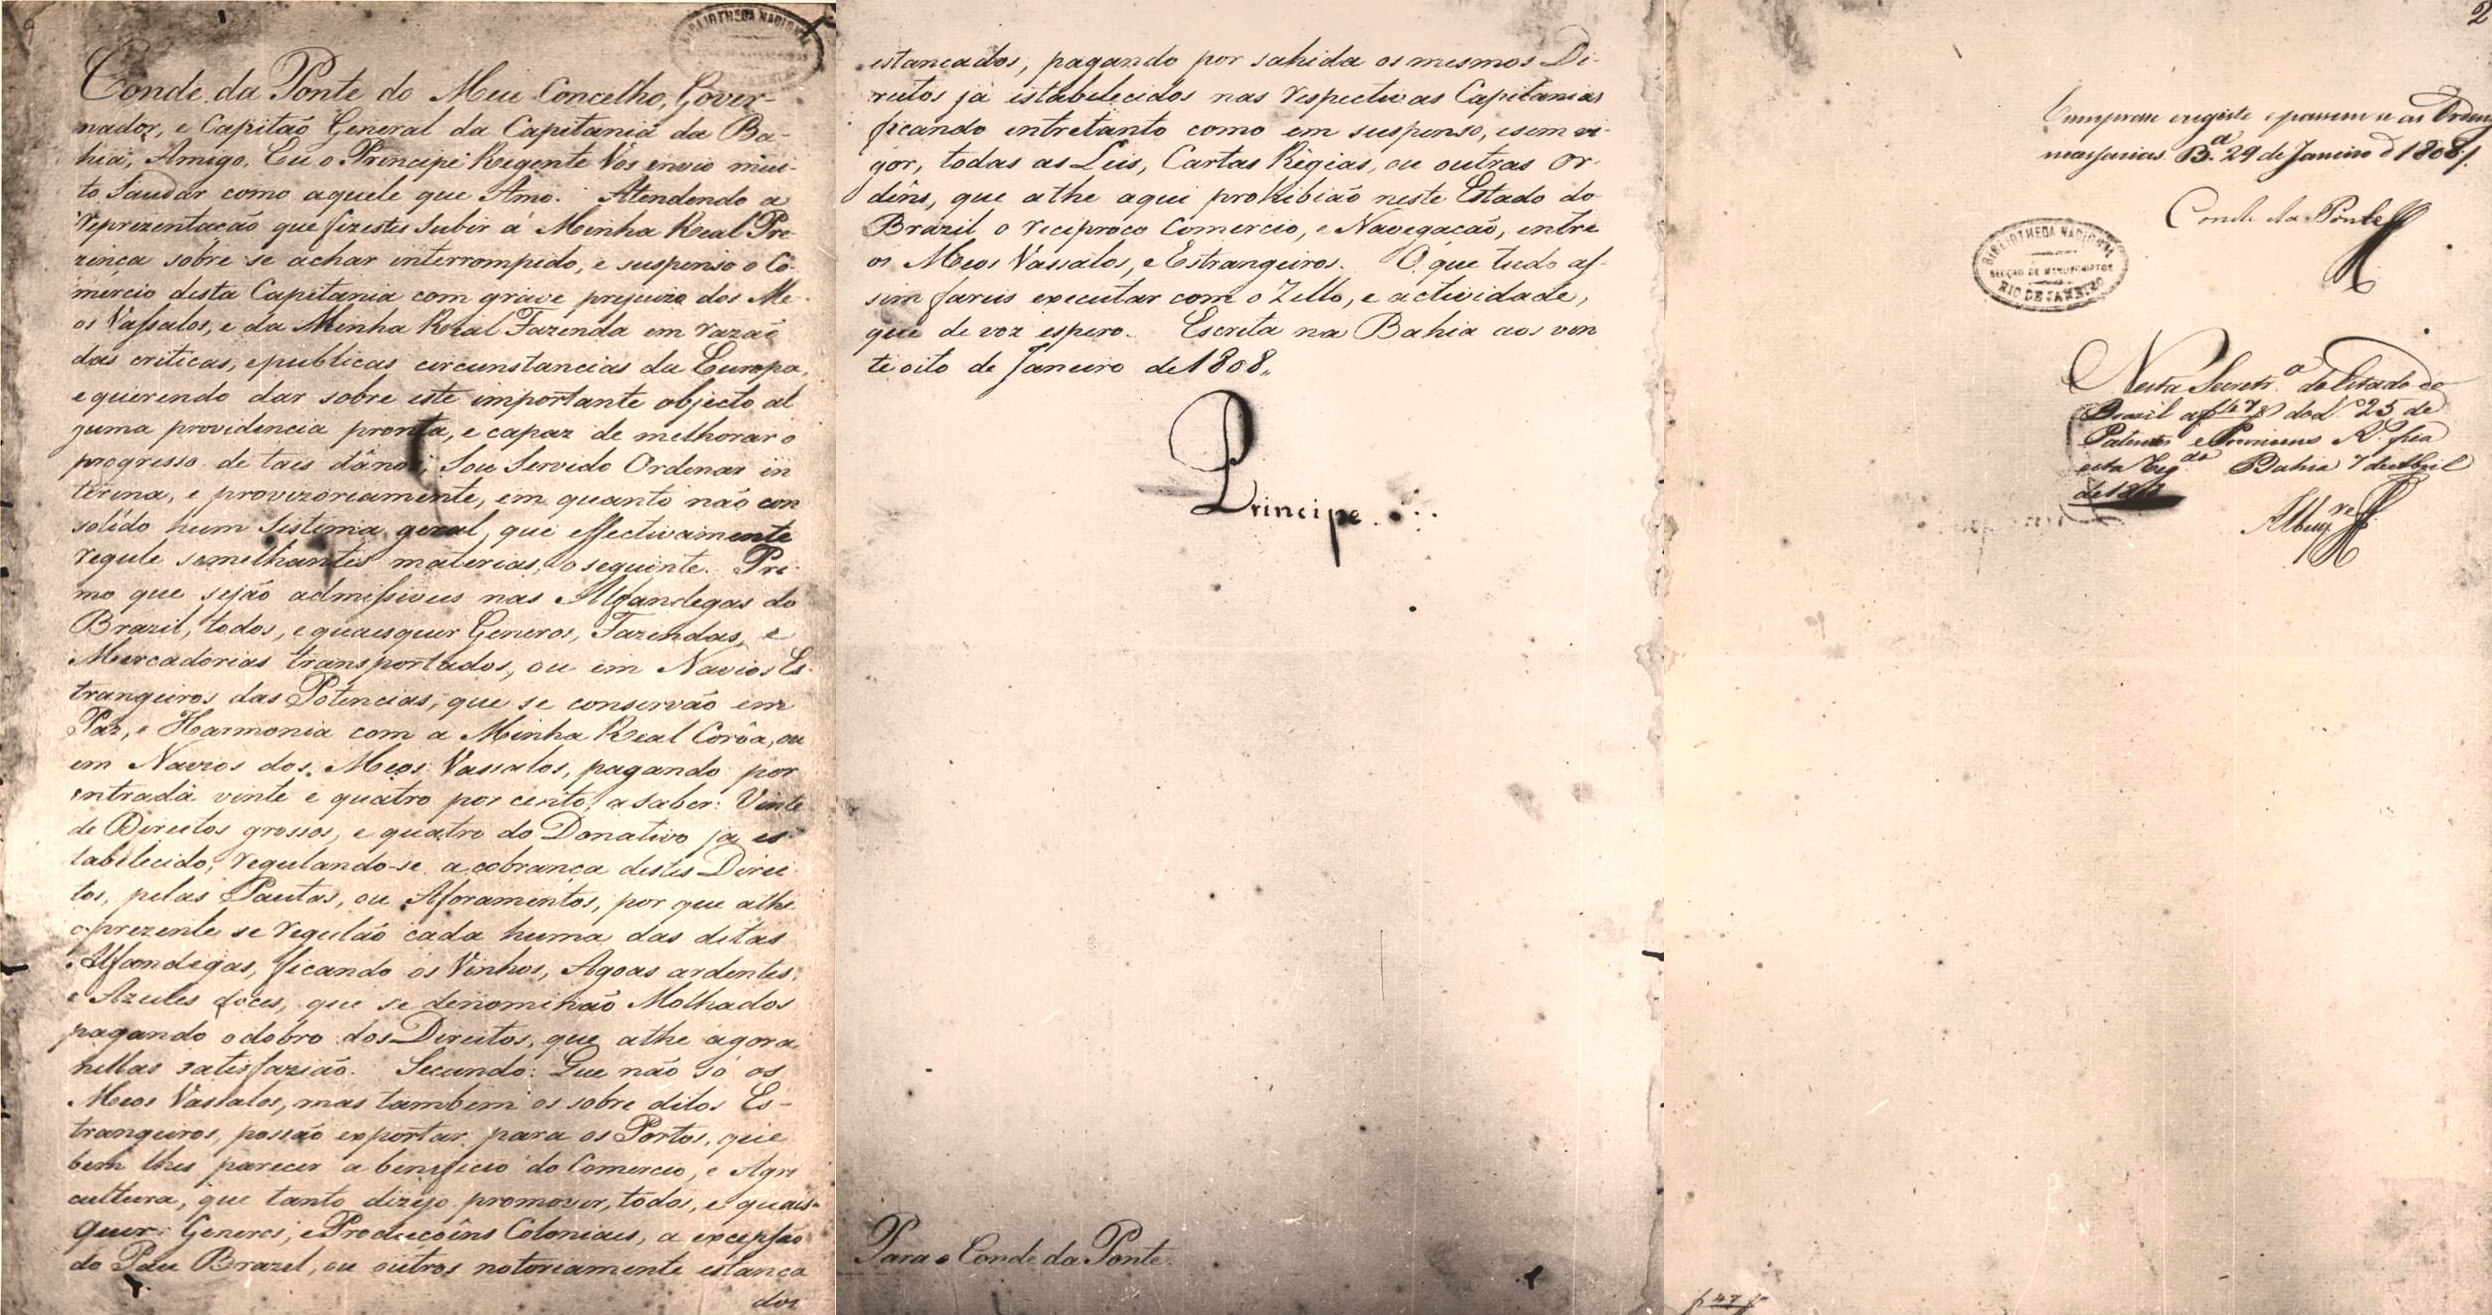 Conde da Ponte do Meu Concelho, Gover-
nador, e Capitaõ General da Capitania da Ba-
hia, Amigo. Eu o Principe Regente Vós envio mui-
to Saudar como aquele que Amo. Atendendo a
reprezentacaõ que fizestes subir á Minha Real Pre-
zinca sobre se achar interrompido, e suspenso o Co-
mercio desta Capitania com grave prejuizo dos Me-
os Vassalos, e da Minha Real Fazenda em razaõ
das criticas, e publicas circunstancias da Europa,
e querendo dar sobre este importante objecto al
guma providencia pronta, e capaz de melhorar o
progresso de taes dânos; Sou Servido Ordenar in
terina, e provizoriamente, em quanto naõ con
solido hum Sistema geral, que effectivamente
regule semelhantes materias, o seguinte. Pri-
mo que sejaõ admissiveis nas Alfandegas do
Brazil, todos, e quaesquer Generos, Fazendas, e
Mercadorias transportados, ou em Navios Es-
trangeiros das Potencias, que se conservaõ em
Paz, e Harmonia com a Minha Real Corôa, ou
em Navios dos Meos Vassalos, pagando por
entrada vinte e quatro por cento, a saber: Vinte
de Direitos grossos, e quatro do Donativo já es
tabelecido, regulando-se a cobrança destes Direi-
tos, pelas Pautas, ou Aforamentos, por que athe
o prezente se regulaõ cada huma das ditas
Alfandegas, ficando os Vinhos, Agoas ardentes,
e Azeites doces, que se denominaõ Molhados
pagando o dobro dos Direitos, que athe agora
nellas satisfaziaõ. Secundo: Que naõ só os
Meos Vassalos, mas tambem os sobre ditos Es-
trangeiros, possaõ exportar para os Portos, que
bem lhes parecer a beneficio do Comercio, e Agri
cultura, que tanto dezejo promover, todos, e quaes-
quer Generos, e Producoîns Coloniaes, a excepsaõ
do Pau Brazil, ou outros notoriamente estanca
dos
estancados, pagando por sahida os mesmos Di-
reitos já estabelecidos nas respectivas Capitanias
ficando entretanto como em suspenso, e sem vi-
gor, todas as Leis, Cartas Régias, ou outras Or-
dêns, que athe aqui prohibiaõ neste Estado do
Brazil o reciproco Comercio, e Navegacaõ, entre
os Meos Vassalos, e Estrangeiros. O que tudo as-
sim fareis executar com o Zello, e actividade,
que de voz espero. Escrita na Bahia aos vin
te oito de Janeiro de 1808,,
Principe
Para o Conde da Ponte
2
Cumprase registe e passem se as Ordens
necessarias. B.ª 29 de Janeiro d 1808
Conde da Ponte
BIBLIOTHECA NACIONAL
SECÇÃO DE MANUSCRIPTOS
RIO DE JANEIRO
Nesta Secretr.ª do Estado do
Brazil a f 47 do L.º 25 de
Patentes e Provisoens R.s fica
esta Reg.da Bahia 7 de Abril
f 47